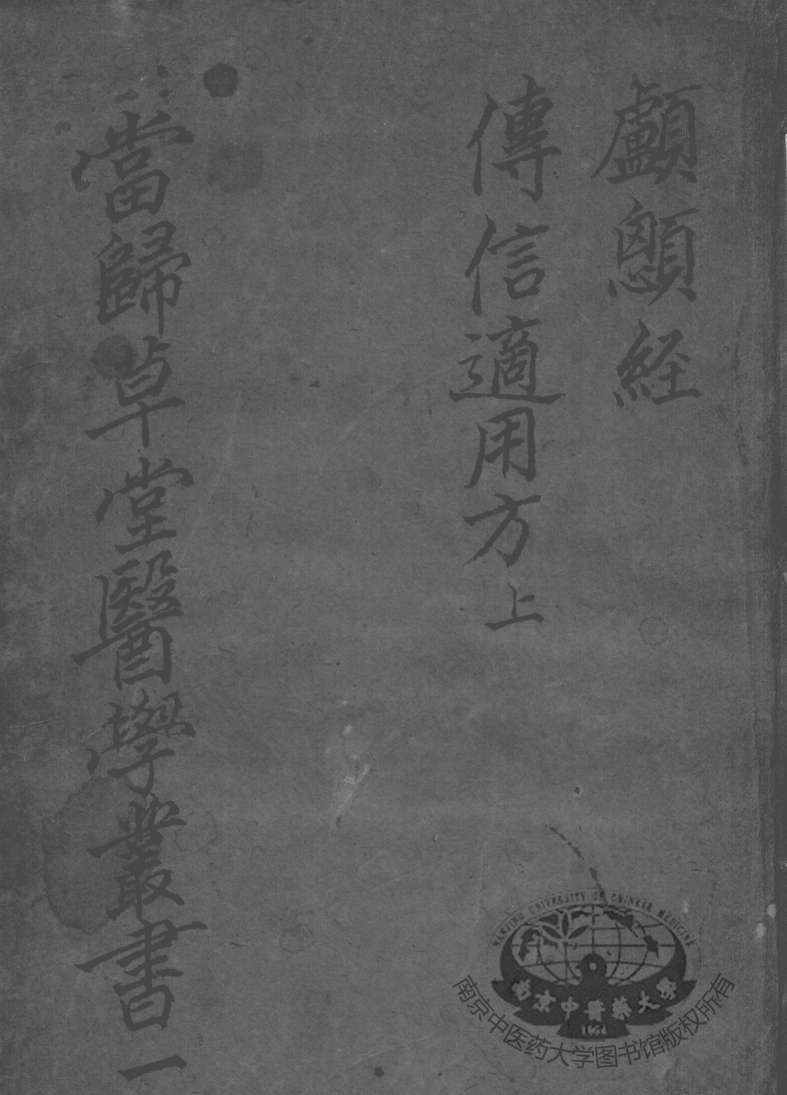 顱顖経
傳信適用方上
當歸草堂醫學叢書一
NANJING UNIVERSITY OF CHINESE MEDICINE
南京中醫藥大學
1954
南京中医药大学图书馆版权所有